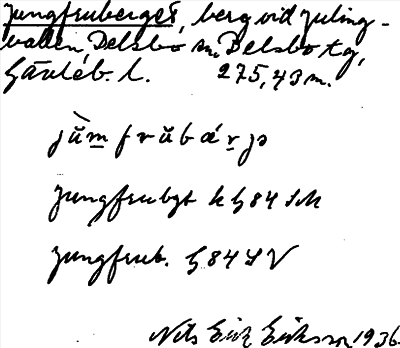 Jungfruberget, berg vid Juling-
vallen, Delsbo sn, Delsbo tg,
Gävleb. l. 275,43 m.
jùm frŭbárjə
Jungfrubgt h G84 SM
Jungfrub. G84SV
Nils Erik Eriksson 1936.